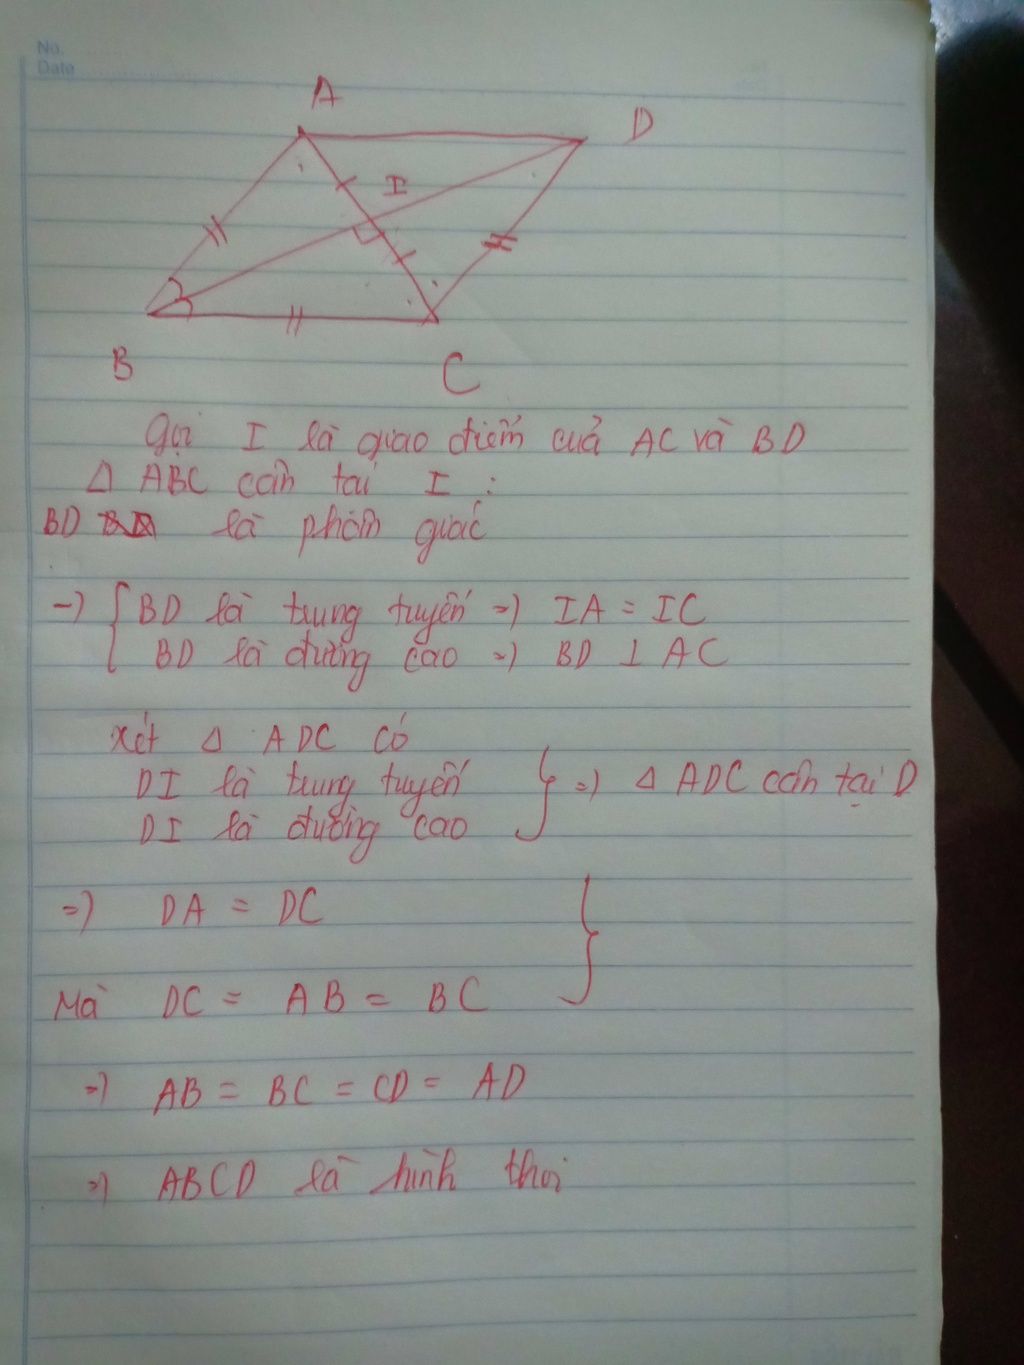 No.
Date
A
D
I
B
C
Gọi I là giao điểm của AC và BD
Δ ABC cân tại I :
BD là phân giác
=) { BD là trung tuyến =) IA = IC
BD là đường cao =) BD ⊥ AC
Xét Δ ADC có
DI là trung tuyến
DI là đường cao } =) Δ ADC cân tại D
=) DA = DC }
Mà DC = AB = BC
=) AB = BC = CD = AD
=) ABCD là hình thoi